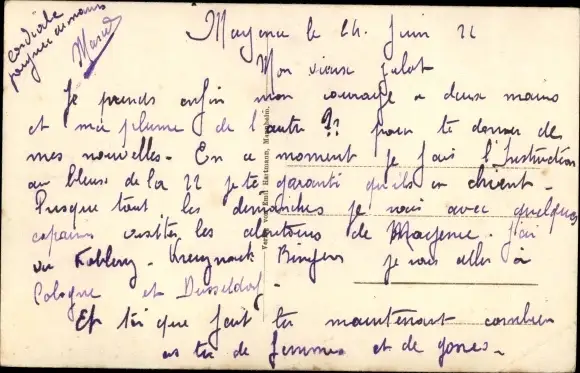 cordiale
poignée de mains
Marcel
Mayence le 24. Juin 22
Mon vieux Julot
Je prends enfin mon courage a deux mains
et ma plume de l'autre ?? pour te donner des
mes nouvelles. En ce moment je fais l'Instruction
au bleus de la 22 je te garanti qu'ils en chient.
Presque tout les dimanches je vais avec quelques
copains visiter les alentours de Mayence. J'ai
vu Koblenz. Kreuznach Bingen je vais aller à
Cologne et Dusseldorf.
Et toi que fait tu maintenant combien
as tu de femmes et de gosses.
Emil Hartmann, Mannheim.